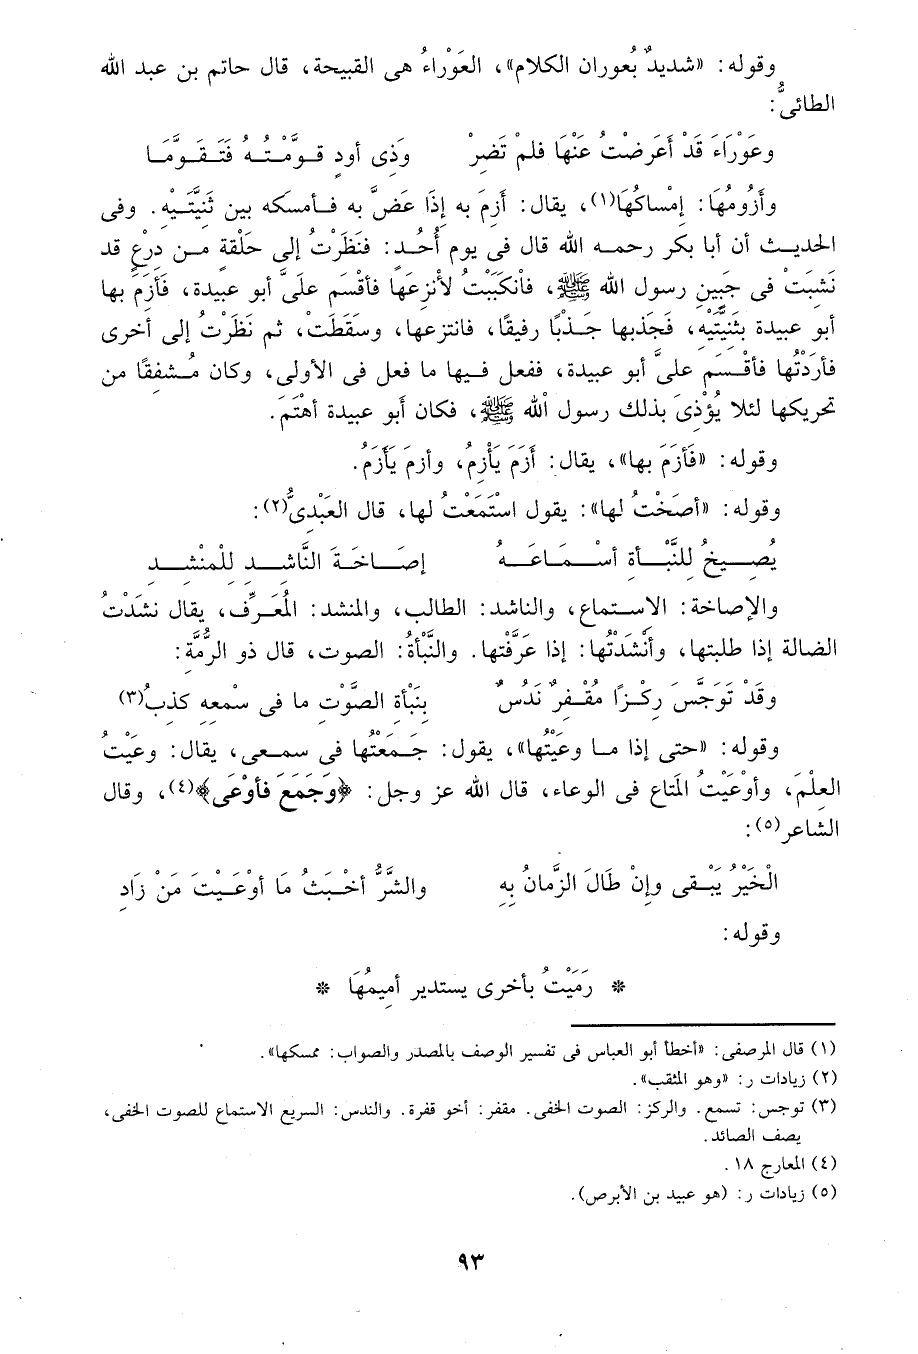 وقوله: «شديدٌ بُعوران الكلام»، العَوْراءُ هى القبيحة، قال حاتم بن عبد الله
الطائىُّ:
وعَوْرَاءَ قَدْ أَعَرضْتُ عَنْهَا فلمْ تَضِرْ وَذِى أودٍ قوَّمْتُهُ فَتَقَوَّمَا
وأَزُومُهَا: إمْساكُهَا(١)، يقال: أَزِمَ به إذَا عَضَّ به فأمسكه بين ثَنِيَّتَيْهِ. وفى
الحديث أن أبا بكر رحمه الله قال فى يوم أُحُدٍ: فنَظَرْتُ إلى حَلْقةٍ من دِرْعٍ قد
نَشِبَتْ فى جَبِينِ رسول الله ﷺ، فانْكَبَبْتُ لأنْزِعَهَا فأقْسَم علىَّ أبو عبيدة، فَأَزَمَ بها
أبو عبيدة بِثَنِيَّتَيْهِ، فَجَذبها جَذْبًا رفيقًا، فانتزعها، وسقَطَتْ، ثم نَظَرْتُ إلى أخرى
فأرَدْتُها فأقْسَم علىَّ أبو عبيدة، ففعل فيها ما فعل فى الأولى، وكان مُشفقًا من
تحريكها لئلا يُؤْذِىَ بذلك رسول الله ﷺ، فكان أبو عبيدة أهْتَمَ.
وقوله: «فَأَزَمَ بها»، يقال: أَزَمَ يَأْزِمُ، وأزِمَ يَأزَمُ.
وقوله: «أصَخْتُ لها»: يقول اسْتَمَعْتُ لها، قال العَبْدِىُّ(٢):
يُصِيخُ للنَّبْأَةِ أسْمَاعَهُ إصَاخَةَ النَّاشِدِ للمُنْشِدِ
والإصاخة: الاستماع، والناشد: الطالب، والمنشد: المُعَرِّف، يقال نشَدْتُ
الضالة إذا طلبتها، وأَنْشَدْتُها: إذا عَرَّفْتها. والنَّبْأةُ: الصوت، قال ذو الرُّمَّة:
وقَدْ تَوَجَّسَ رِكْزًا مُقْفِرٌ نَدُسٌ بِنَبْأة الصَّوْتِ ما فى سَمْعه كَذبُ(٣)
وقوله: «حتى إذا ما وعَيْتُها»، يقول: جَمَعْتُها فى سمعى، يقال: وعَيْتُ
العِلْمَ، وأوْعَيْتُ المَتاع فى الوعاء، قال الله عز وجل: ﴿وَجَمَعَ فَأَوْعَى﴾(٤)، وقال
الشاعر(٥):
الْخَيْرُ يَبْقى وإنْ طَالَ الزَّمانُ بِهِ والشَّرُّ أخْبَثُ مَا أوْعَيْتَ مِنْ زَادِ
وقوله:
* رَمَيْتُ بأخرى يستدير أميمُهَا *
(١) قال المرصفى: «أخطأ أبو العباس فى تفسير الوصف بالمصدر والصواب: ممسكها».
(٢) زيادات ر: «وهو المثقب».
(٣) توجس: تسمع. والركز: الصوت الخفى. مقفر: أخو قفرة. والندس: السريع الاستماع للصوت الخفى،
يصف الصائد.
(٤) المعارج ١٨.
(٥) زيادات ر: (هو عبيد بن الأبرص).
٩٣